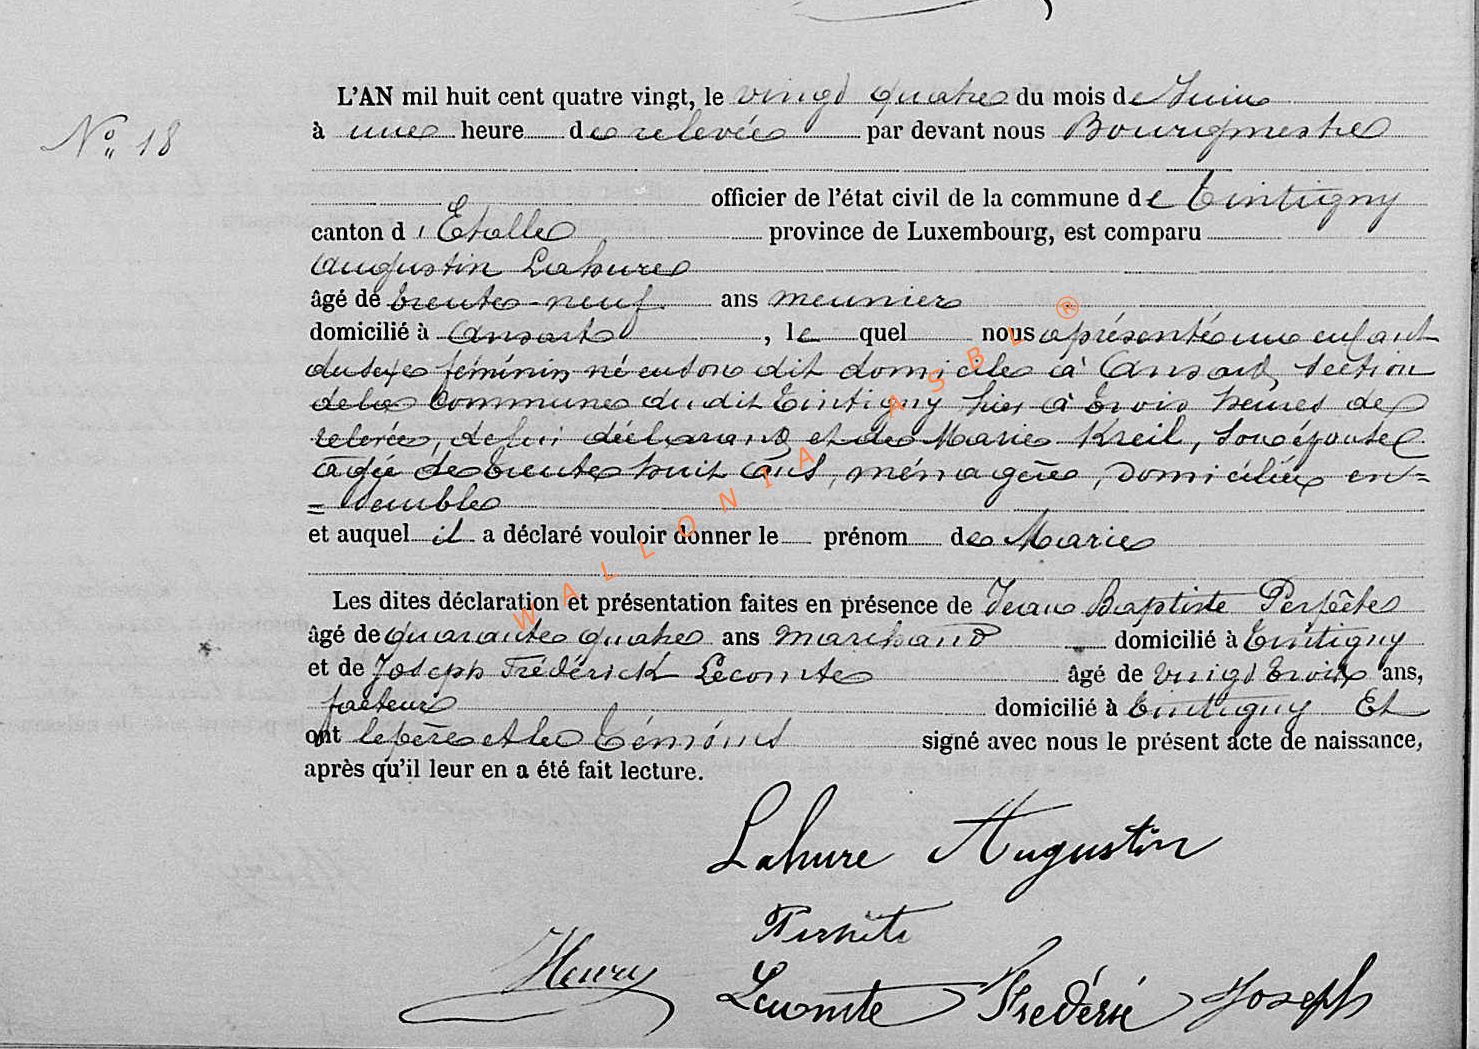 N° 18
L'AN mil huit cent quatre vingt, le vingt quatre du mois de Juin
à une heure de relevée par devant nous Bourgmestre
officier de l'état civil de la commune de Tintigny
canton d'Etalle province de Luxembourg, est comparu
Augustin Lahure
âgé de trente-neuf ans meunier
domicilié à Ansart, le quel nous a présenté un enfant
du sexe féminin né en son dit domicile à Ansart, section
de la Commune du dit Tintigny hier à trois heures de
relevée, de lui déclarant et de Marie Kreil, son épouse
âgée de trente huit ans, ménagère, domiciliée en=
=semble
et auquel il a déclaré vouloir donner le prénom de Marie
Les dites déclaration et présentation faites en présence de Jean Baptiste
âgé de quarante quatre ans marchand domicilié à Tintigny
et de Joseph Frédérick Lecomte âgé de vingt trois ans,
facteur domicilié à Tintigny Et
ont le père et les témoins signé avec nous le présent acte de naissance,
après qu'il leur en a été fait lecture.
Lahure Augustin
Henry
Lecomte Frédéric Joseph
WALLONIA ASBL ®